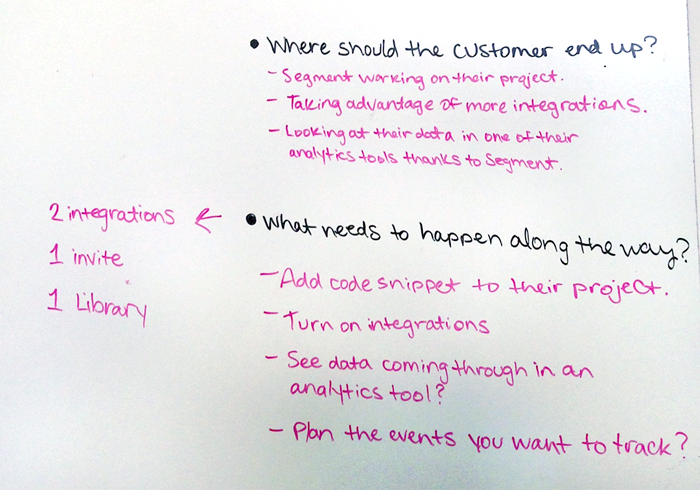 • Where should the customer end up?
- Segment working on their project.
- Taking advantage of more integrations.
- Looking at their data in one of their
analytics tools thanks to Segment.
• What needs to happen along the way?
- Add code snippet to their project.
- Turn on integrations
- See data coming through in an
analytics tool?
- Plan the events you want to track?
2 integrations ←
1 invite
1 Library